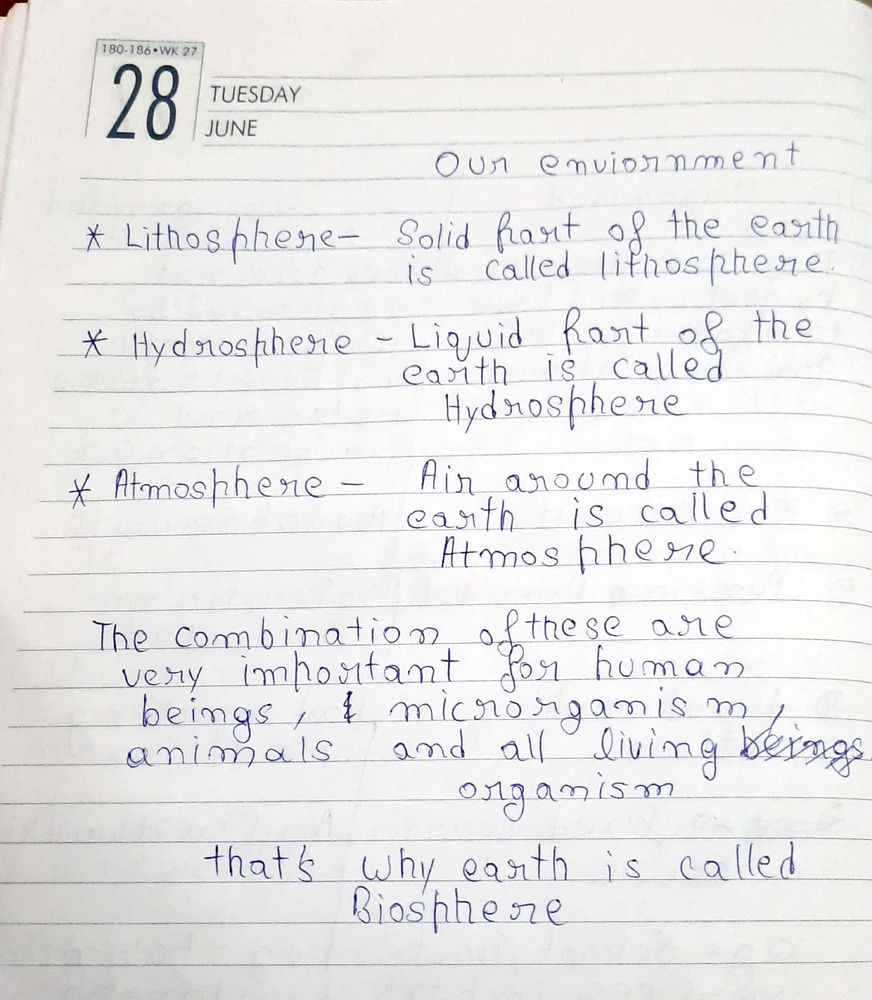 180-186•WK 27
28
TUESDAY
JUNE
Our enviornment
* Lithosphere- Solid part of the earth
is called lithosphere.
* Hydrosphere - Liquid part of the
earth is called
Hydrosphere
* Atmosphere - Air around the
earth is called
Atmosphere.
The combination of these are
very important for human
beings, & microrganism,
animals and all living beings
organism
that's why earth is called
Biosphere